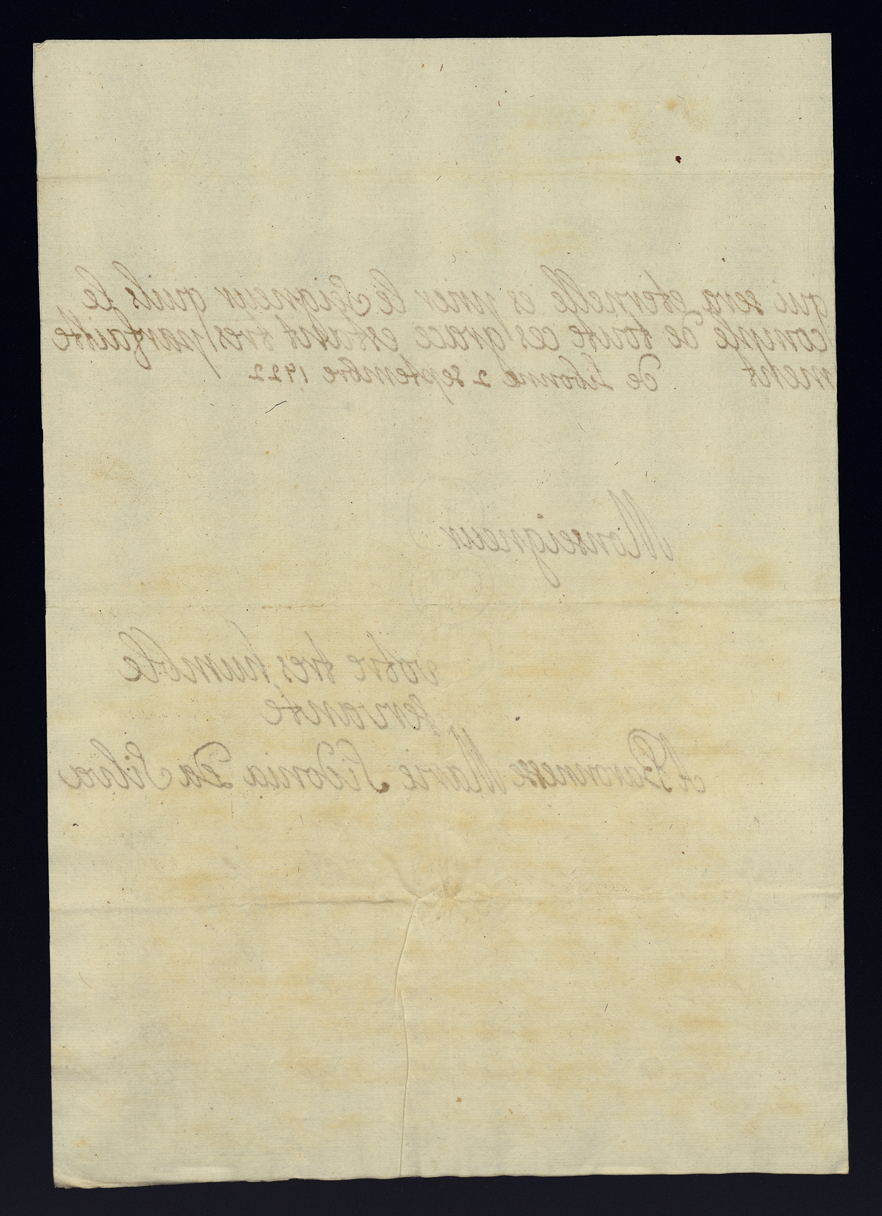 qui sera eternelle es prier le Seigneur quils le
comple de toute ces grace estant tres parfaitte
ment de Lisbonne 2 septembre 1722
Monseigneur
vôtre tres humble
servante
A Baronnesse Marie Sidonia Da Silva